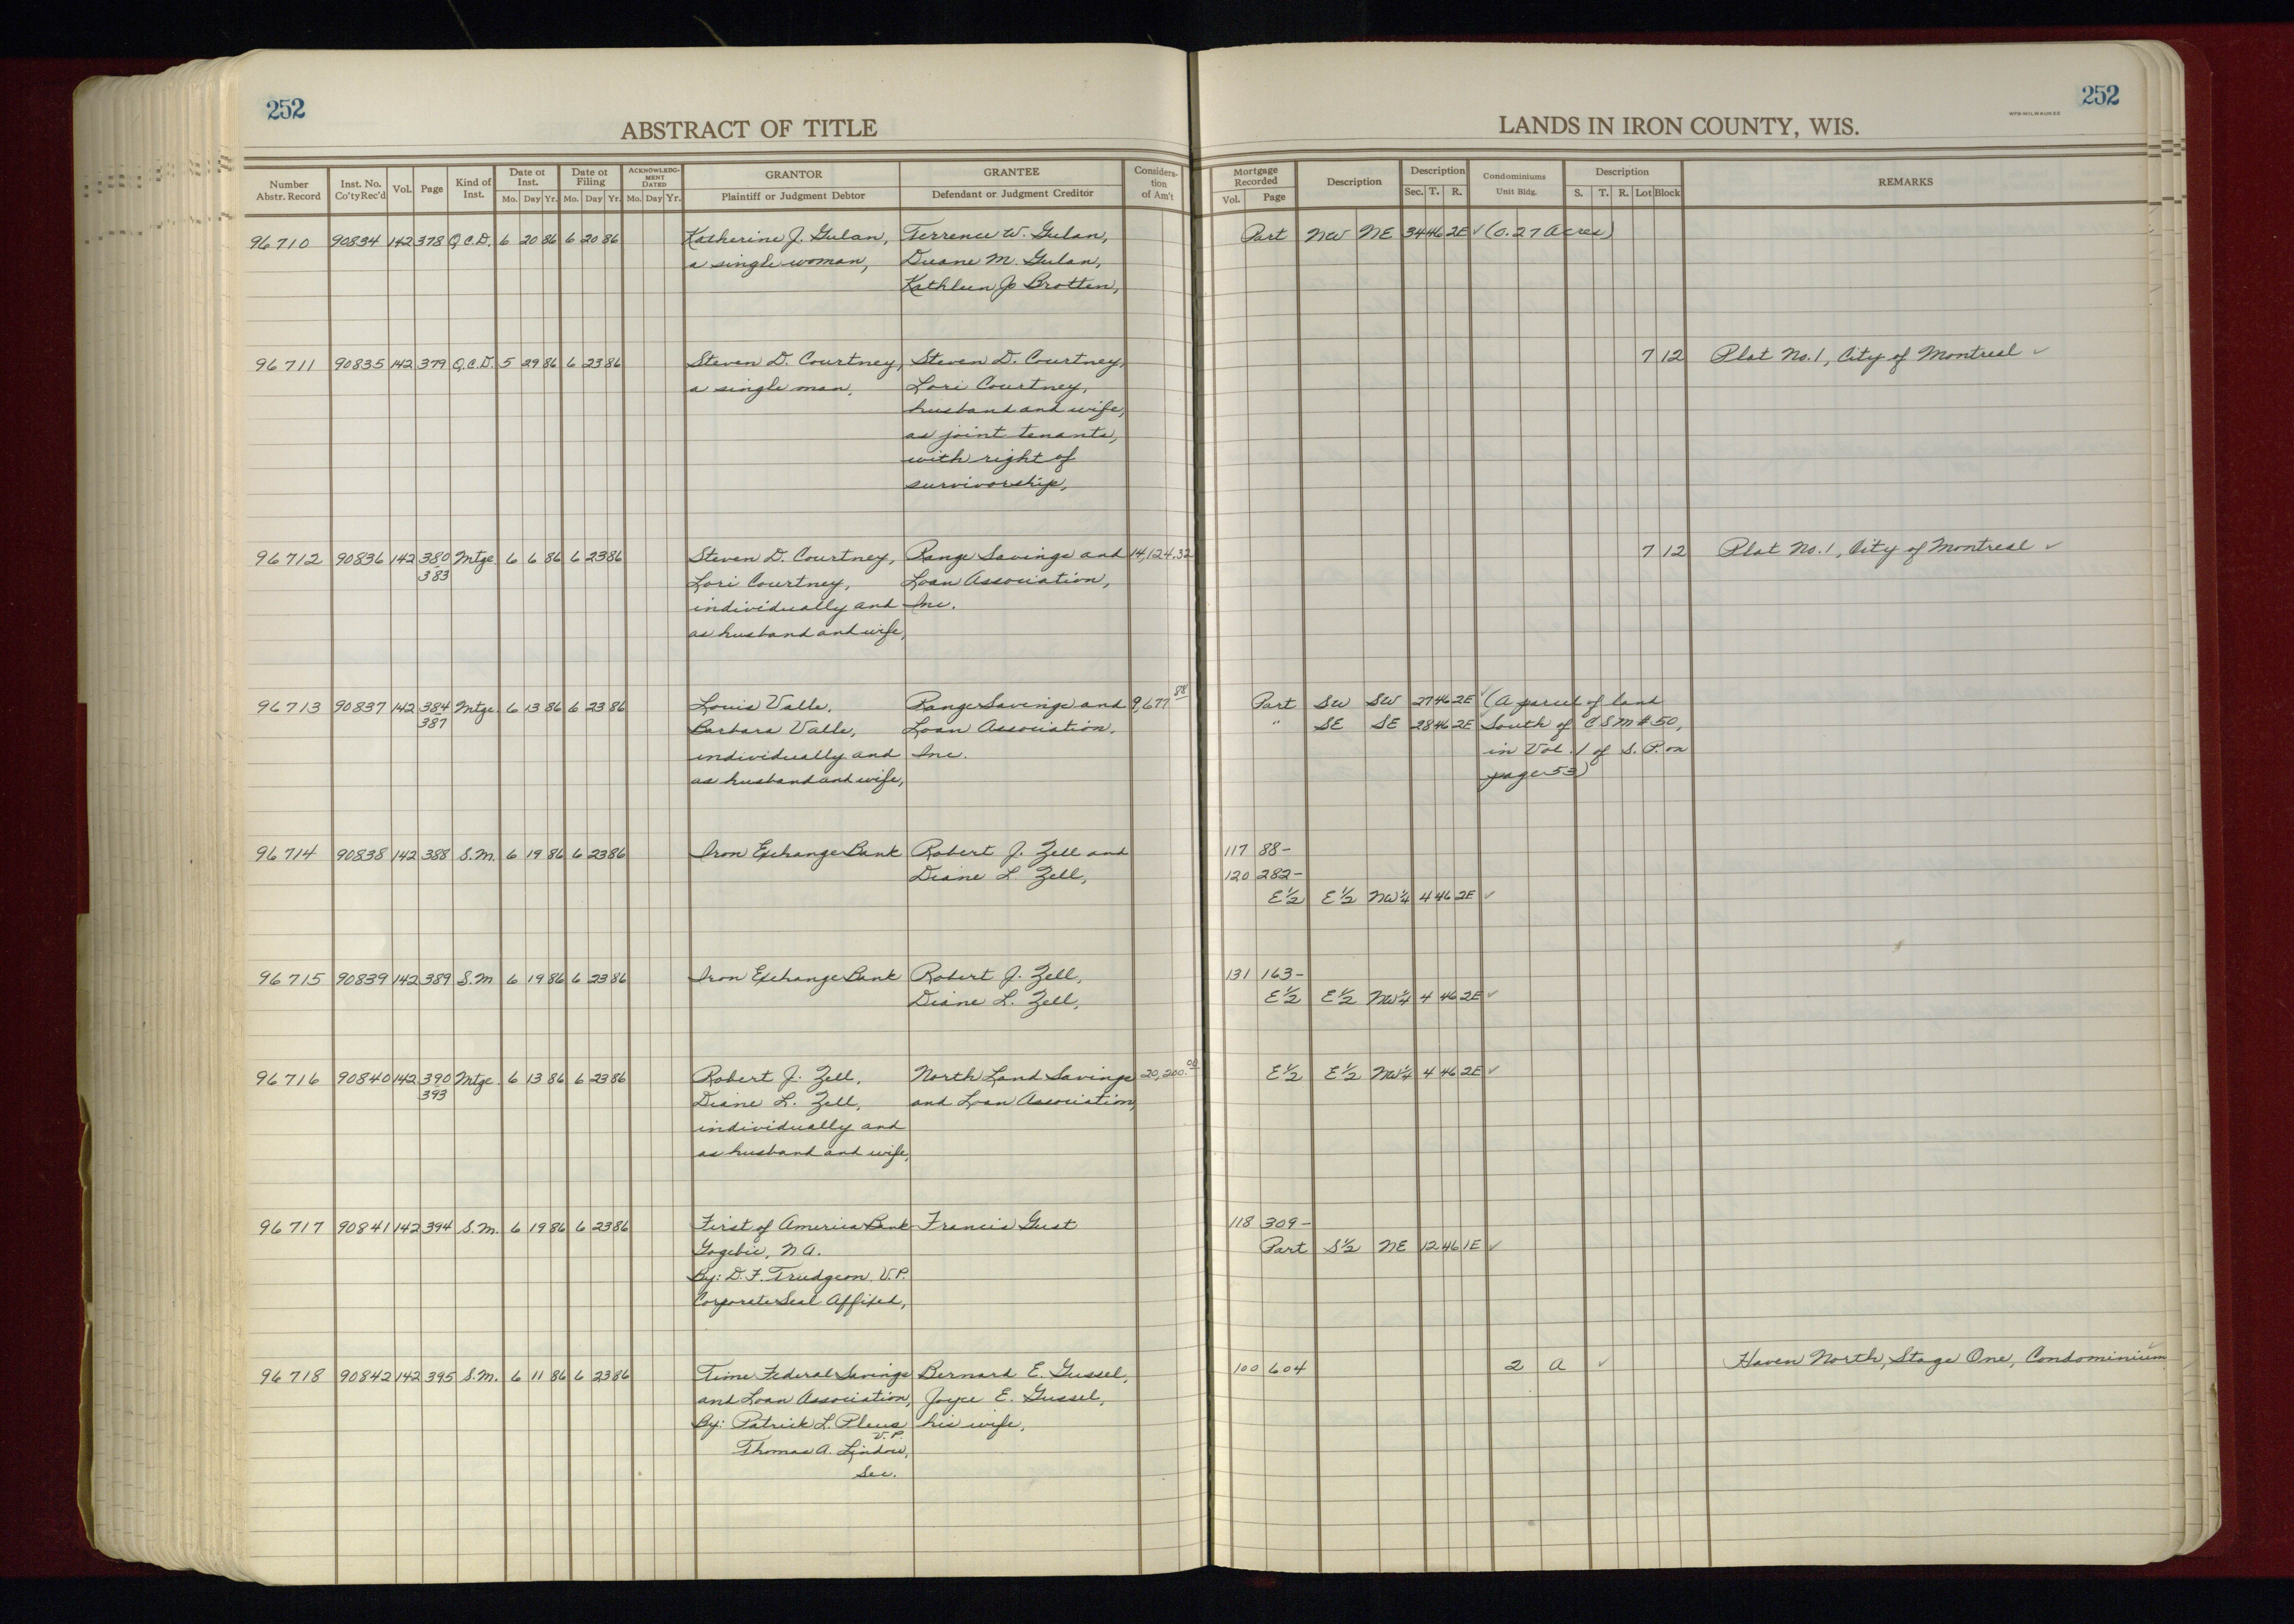 252
252
ABSTRACT OF TITLE
LANDS IN IRON COUNTY, WIS.
WPB-MILWAUKEE
Number Abstr. Record | Inst. No. Co'ty Rec'd | Vol. | Page | Kind of Inst. | Date of Inst. Mo. Day Yr. | Date of Filing Mo. Day Yr. | ACKNOWLEDG-MENT DATED Mo. Day Yr. | GRANTOR Plaintiff or Judgment Debtor | GRANTEE Defendant or Judgment Creditor | Considera-tion of Am't | Mortgage Recorded Vol. Page | Description | Description Sec. T. R. | Condominiums Unit Bldg. | Description S. T. R. Lot Block | REMARKS
96710 90834 142 378 Q.C.D. 6 20 86 6 20 86 Katherine J. Gulan, Terrence W. Gulan, Part NW NE 34 46 2E ✓ (0.27 Acres)
a single woman, Duane M. Gulan,
Kathleen Jo Brotten,
96711 90835 142 379 Q.C.D. 5 29 86 6 23 86 Steven D. Courtney, Steven D. Courtney, 7 12 Plat No. 1, City of Montreal ✓
a single man, Lori Courtney,
husband and wife,
as joint tenants,
with right of
survivorship,
96712 90836 142 380 Mtge 6 6 86 6 23 86 Steven D. Courtney, Range Savings and 14,124.32 7 12 Plat No. 1, City of Montreal ✓
383 Lori Courtney, Loan Association,
individually and Inc.
as husband and wife,
96713 90837 142 384 Mtge 6 13 86 6 23 86 Louis Valle, Range Savings and 9,677.88 Part SW SW 27 46 2E ✓ (A parcel of land
387 Barbara Valle, Loan Association, " SE SE 28 46 2E South of CSM #50,
individually and Inc. in Vol. 1 of S.P. on
as husband and wife, page 53)
96714 90838 142 388 S.M. 6 19 86 6 23 86 Iron Exchange Bank Robert J. Zell and 117 88-
Diane L. Zell, 120 282-
E½ E½ NW¼ 4 46 2E ✓
96715 90839 142 389 S.M 6 19 86 6 23 86 Iron Exchange Bank Robert J. Zell, 131 163-
Diane L. Zell, E½ E½ NW¼ 4 46 2E ✓
96716 90840 142 390 Mtge 6 13 86 6 23 86 Robert J. Zell, North Land Savings 20,200.00 E½ E½ NW¼ 4 46 2E ✓
393 Diane L. Zell, and Loan Association,
individually and
as husband and wife,
96717 90841 142 394 S.M. 6 19 86 6 23 86 First of America Bank- Francis Gust 118 309-
Gogebic, N.A. Part S½ NE 12 46 1E ✓
By: D. F. Trudgeon, V.P.
Corporate Seal Affixed,
96718 90842 142 395 S.M. 6 11 86 6 23 86 Time Federal Savings Bernard E. Gussel, 100 604 2 A ✓ Haven North, Stage One, Condominium ✓
and Loan Association, Joyce E. Gussel,
By: Patrick L. Pleus his wife,
V.P.
Thomas A. Lindow,
Sec.